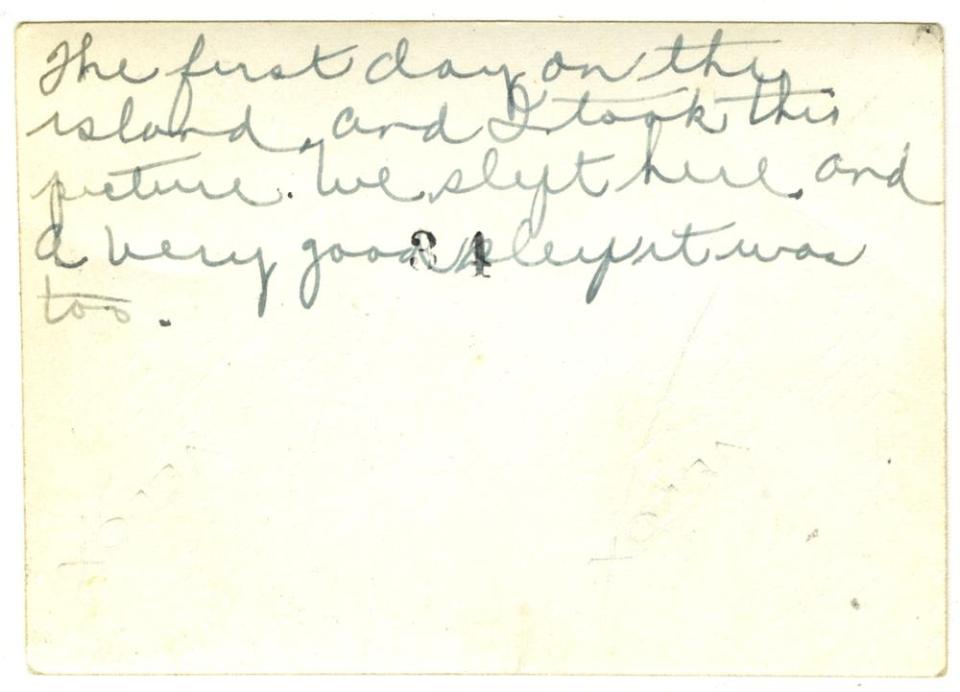 The first day on the
island, and I took this
picture. We slept here, and
a very good sleep it was
too.
34